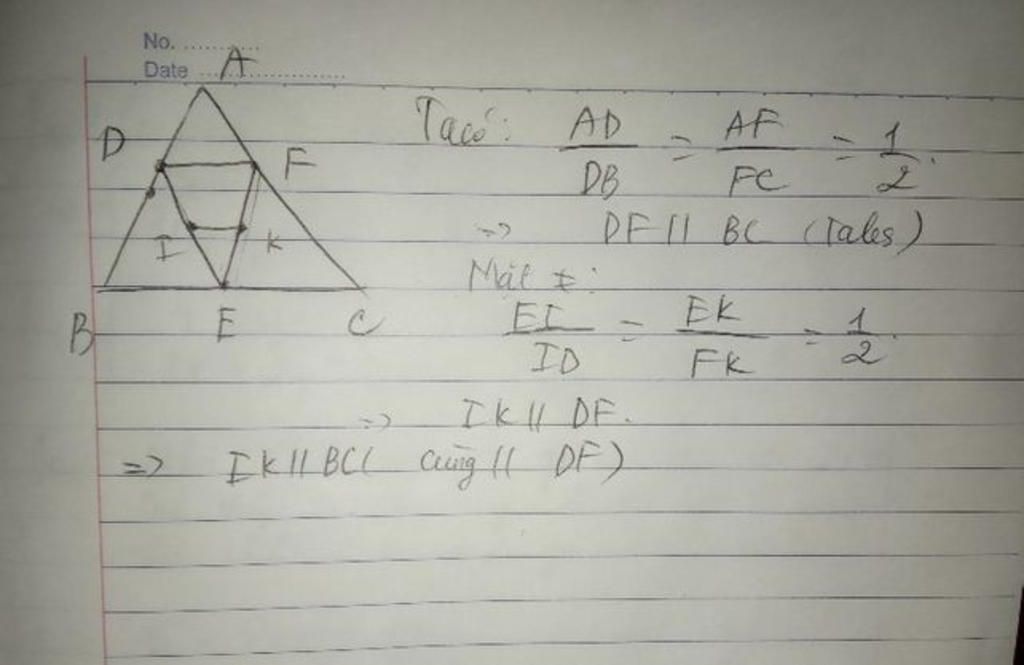 No. ............
Date ........................
A
D
F
I
K
B
E
C
Ta có: AD/DB = AF/FC = 1/2.
=> DF // BC (Tales)
Mặt ≠:
EI/ID = EK/FK = 1/2.
=> IK // DF.
=> IK // BC ( cùng // DF)